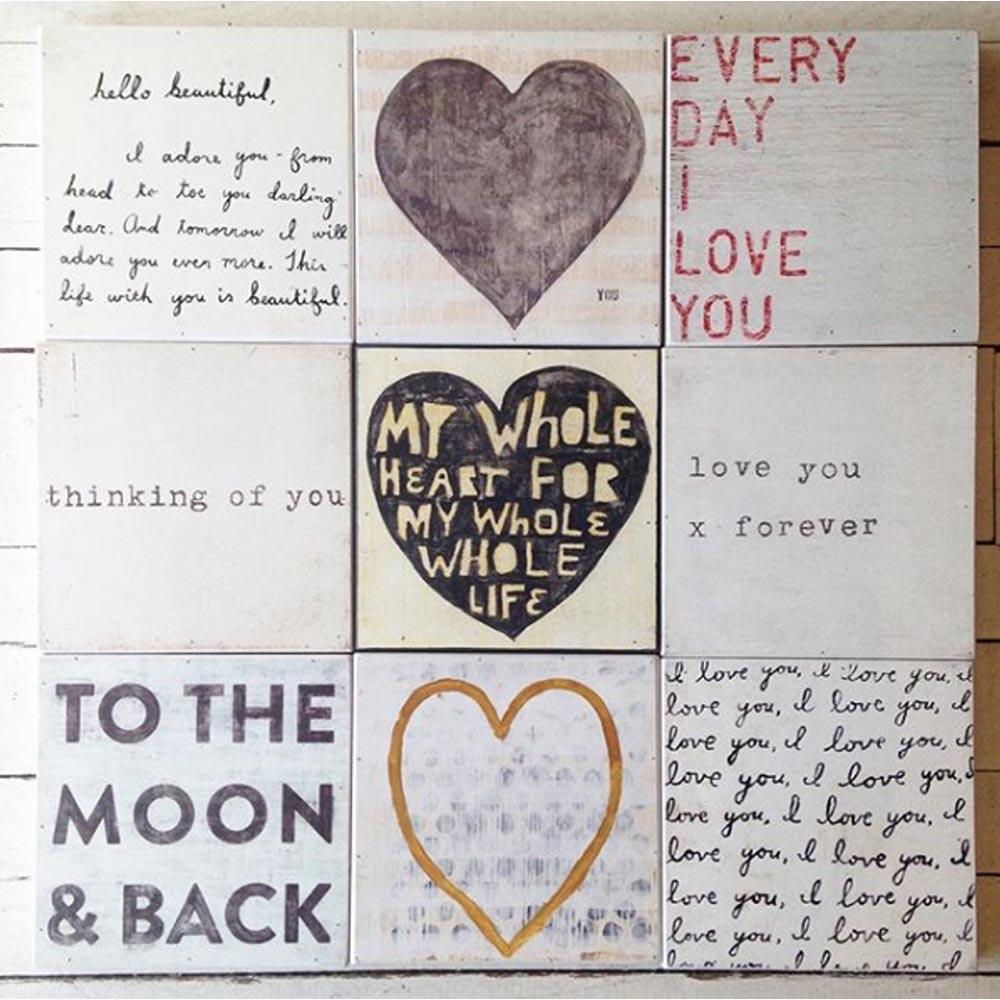 hello beautiful,
I adore you - from
head to toe you darling
dear. And tomorrow I will
adore you even more. This
life with you is beautiful.
YOU
EVERY
DAY
I
LOVE
YOU
thinking of you
MY WhOLE
HEART FOR
MY WhOLE
WHOLE
LIFE
love you
x forever
TO THE
MOON
& BACK
I love you, I love you, I
love you, I love you, I
love you, I love you, I
love you, I love you, I
love you, I love you, I
love you, I love you, I
love you, I love you, I
love you, I love you, I